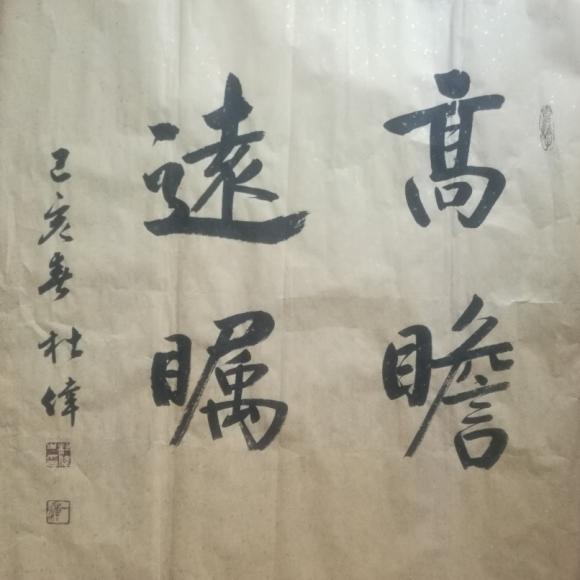 高瞻
遠瞩
己亥春杜偉